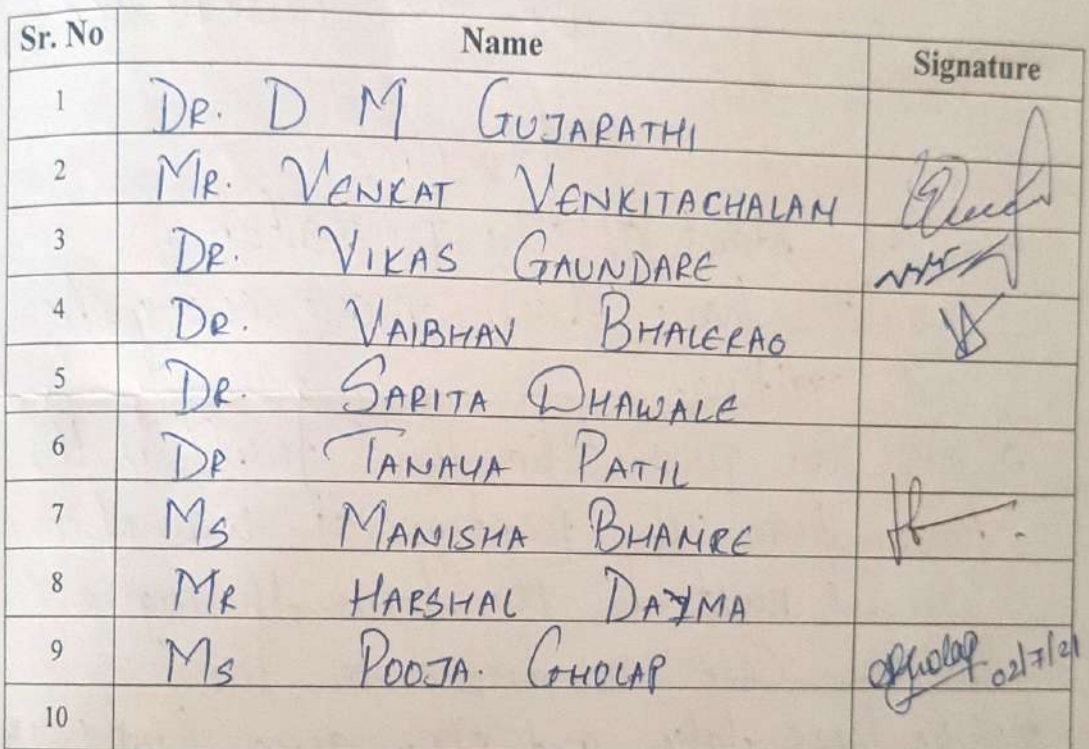 Sr. No Name Signature
1 DR. D M GUJARATHI
2 MR. VENKAT VENKITACHALAM
3 DR. VIKAS GAUNDARE
4 DR. VAIBHAV BHALERAO
5 DR. SARITA DHAWALE
6 DR. TANAYA PATIL
7 MS MANISHA BHAMRE
8 MR HARSHAL DAYMA
9 MS POOJA. GHOLAP Gholap 02/7/21
10